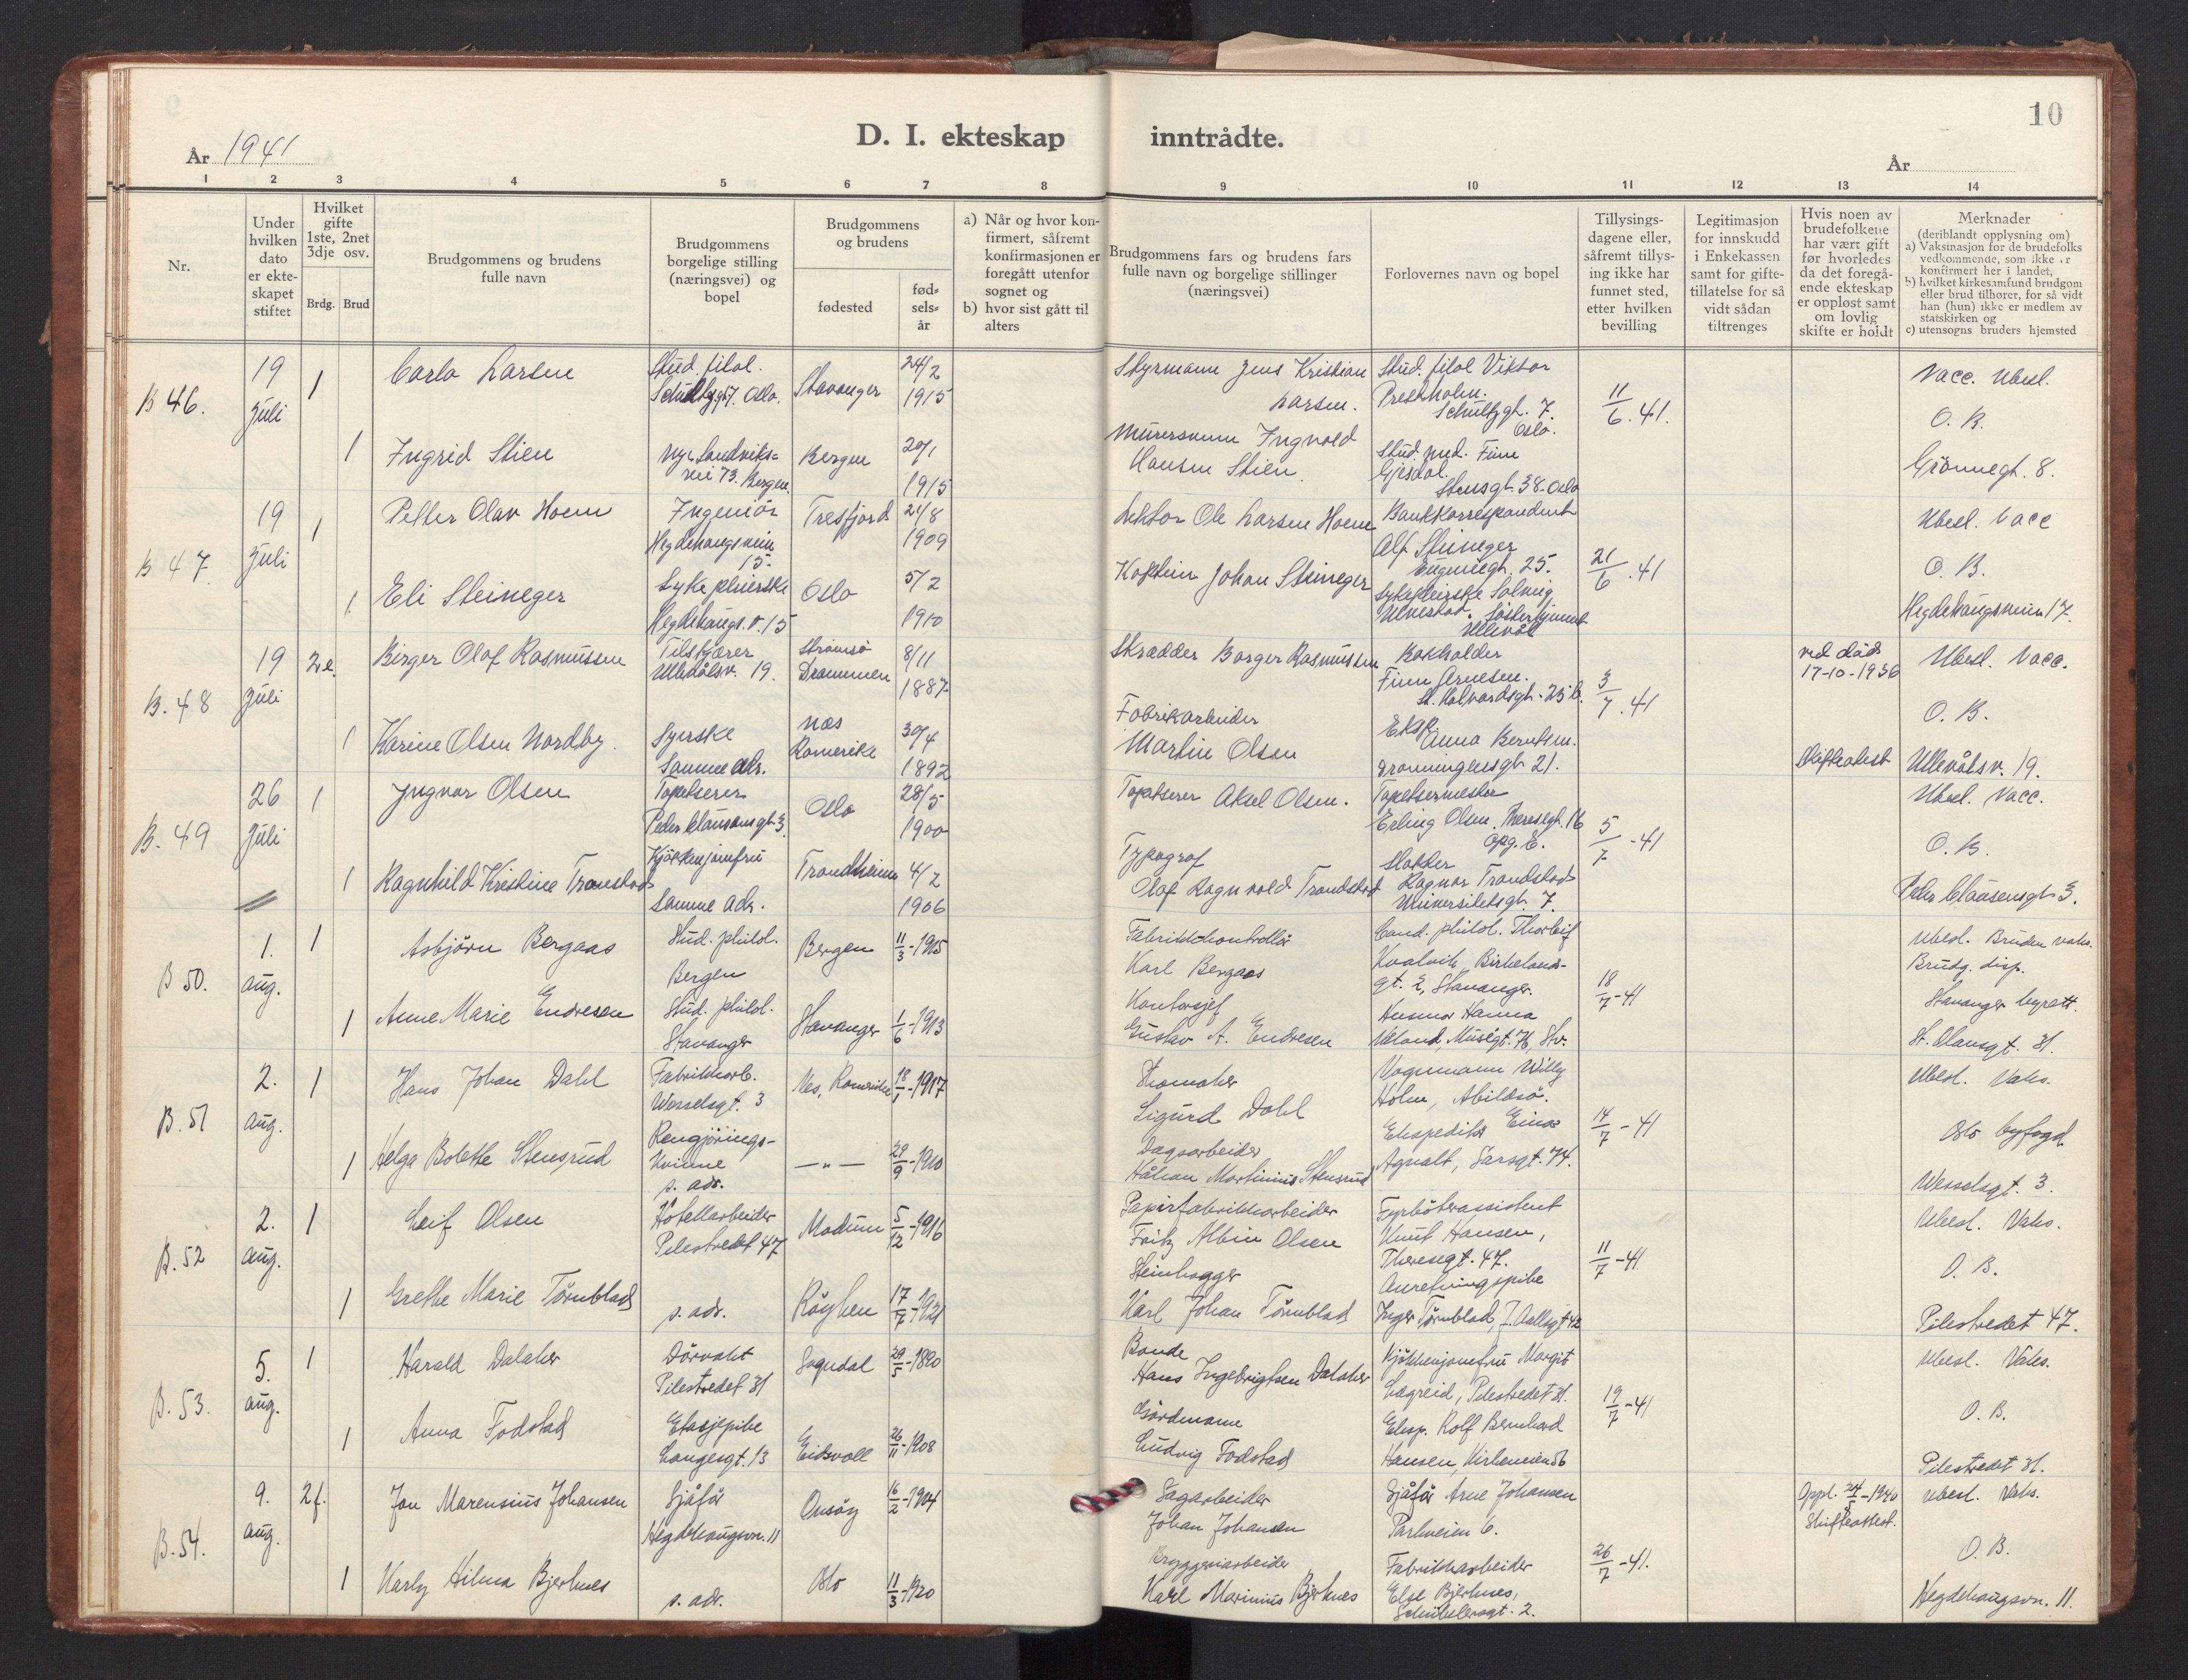 10
D. I. ekteskap inntrådte.
År 1941
År
1 2 3 4 5 6 7 8 9 10 11 12 13 14
Nr.
Under hvilken dato er ekteskapet stiftet
Hvilket gifte 1ste, 2net 3dje osv.
Brdg. Brud
Brudgommens og brudens fulle navn
Brudgommens borgelige stilling (næringsvei) og bopel
Brudgommens og brudens
fødested
fød= sels= år
a) Når og hvor konfirmert, såfremt konfirmasjonen er foregått utenfor sognet og
b) hvor sist gått til alters
Brudgommens fars og brudens fars fulle navn og borgelige stillinger (næringsvei)
Forlovernes navn og bopel
Tillysingsdagene eller, såfremt tillysing ikke har funnet sted, etter hvilken bevilling
Legitimasjon for innskudd i Enkekassen samt for giftetillatelse for så vidt sådan tiltrenges
Hvis noen av brudefolkene har vært gift før hvorledes da det foregående ekteskap er oppløst samt om lovlig skifte er holdt
Merknader
(deriblandt opplysning om)
a) Vaksinasjon for de brudefolks vedkommende, som ikke er konfirmert her i landet,
b) hvilket kirkesamfund brudgom eller brud tilhører, for så vidt han (hun) ikke er medlem av statskirken og
c) utensogns bruders hjemsted
B 46.
19 juli
1
Carlo Larsen
Stud. filol.
Schultzgt 7. Oslo.
Stavanger
24/2 1915
Styrmann Jens Kristian Larsen.
Stud. filol Viktor
Prestholm.
Schultzgt. 7. Oslo.
11/6.41.
Vacc. Ubesl.
O. B.
1
Ingrid Stien
Nye Sandviks=
vei 73. Bergen.
Bergen
20/1 1915
Murersvenn Ingvald
Hansen Stien.
Stud. med. Finn
Gjesdal.
Stensgt. 38-Oslo
Grönnegt. 8.
B 47.
19 juli
1
Petter Olav Hoem
Ingeniör
Hegdehaugsveien 15.
Tresfjord
21/8 1909
Lektor Ole Larsen Hoem
Bankkorrespondent
Alf Steineger
Eugeniegt. 25.
21/6.41
Ubesl. Vacc
O. B.
1
Eli Steineger
Sykepleierske
Hegdehaugs.v. 15
Oslo
5/2 1910
Kaptein Johan Steineger
Sykepleierske Solveig
Ulvestad. Søsterhjemmet
Ullevål
Hegdehaugsveien 17.
B. 48
19 juli
2re
Birger Olaf Rasmussen
Tilskjærer
Ullevålsv. 19.
Strömsö
Drammen
8/11 1887
Skrædder Borger Rasmussen
Bokholder
Finn Arnesen.
St. Halvardsgt. 25 b.
3/7.41
ved död
17-10-1936
Ubesl. Vacc.
O. B.
1
Karine Olsen Nordby.
Syerske
Samme adr.
Næs
Romerike
30/4 1892
Fabrikarbeider
Martin Olsen
Eksp.
Anna Berntsen.
Dronningensgt 21.
Skifteattest
Ullevålsv. 19.
B. 49
26 juli
1
Ingvar Olsen
Tapetserer
Peder Clausensgt 3.
Oslo
28/5 1900
Tapetserer Aksel Olsen.
Tapetsermester
Erling Olsen. Theresegt. 16
opg. E.
5/7-41
Ubesl. Vacc.
O. B.
1
Ragnhild Kristine Transtad
Kjökkenjomfru
Samme adr.
Trondheim
4/2 1906
Typograf
Olaf Ragnvald Trandstad
Slakter
Ragnar Trandstad
Universitetsgt. 7.
Peder Clausensgt 3.
B 50.
1. aug.
1
Asbjörn Bergaas
Stud. philol.
Bergen
Bergen
11/3-1915
Fabrikkontrollör
Karl Bergaas
Cand. philol. Thorleif
Kvalvik, Birkelands-
gt. 2, Stavanger.
18/7-41
Ubesl. Bruden vaks.
Brudg. disp.
Stavanger byrett.
1
Anne Marie Endresen
Stud. philol.
Stavanger
Stavanger
1/6-1913
Kontorsjef
Gustav A. Endresen
Husmor Hanna
Ueland, Musegt. 76 Stv.
St. Olavsgt. 31.
B. 51
2. aug.
1
Hans Johan Dahl
Fabrikkarb.
Wesselsgt. 3
Nes, Romerike
18/1-1917
Skomaker
Sigurd Dahl
Vognmann Willy
Holm, Abildsö.
14/7-41
Ubesl. Vaks.
Oslo byfogd
1
Helga Bolette Stensrud
Rengjörings-
kvinne
s. adr.
— „ —
29/9-1910
Dagsarbeider
Håkon Martinius Stensrud
Ekspeditör Einar
Agnalt, Sarsgt. 74.
Wesselsgt. 3.
B. 52
2. aug.
1
Leif Olsen
Hotellarbeider
Pilestredet 47
Modum
5/12-1916
Papirfabrikkarbeider
Fritz Albin Olsen
Fyrböterassistent
Knut Hansen,
Theresegt. 47.
11/7-41
Ubesl. Vaks.
O. B.
1
Grethe Marie Törnblad
s. adr.
Röyken
17/7-1921
Steinhogger
Karl Johan Törnblad
Anretningspike
Inger Törnblad, J. Aallsgt 42
Pilestredet 47.
B. 53.
5. aug.
1
Harald Dalaker
Dörvakt
Pilestredet 31
Sogndal
29/5-1890
Bonde
Hans Ingebrigtsen Dalaker
Kjökkenjomfru Margit
Lægreid, Pilestredet 31.
19/7-41
Ubesl. Vaks.
O. B.
1
Anna Fodstad
Etasjepike
Langesgt. 13
Eidsvoll
26/11-1908
Gårdmann
Ludvig Fodstad
Eksp. Rolf Bernhard
Hansen, Kirkeveien 56
Pilestredet 31.
B. 54.
9. aug.
2f.
Jon Marensius Johansen
Sjåför
Hegdehaugsvn. 11
Onsöy
16/2-1904
Sagarbeider
Johan Johansen
Sjåför Arne Johansen
Parkveien 6.
26/7-41.
Oppl. 24/5-1940
Skifteattest.
Ubesl. Vaks.
O. B.
1
Karly Hilma Bjerknes
s. adr.
Oslo
11/3-1920
Bryggeriarbeider
Karl Marinius Bjerknes
Fabrikkarbeider
Else Bjerknes,
Schübelersgt. 2.
Hegdehaugsvn. 11.